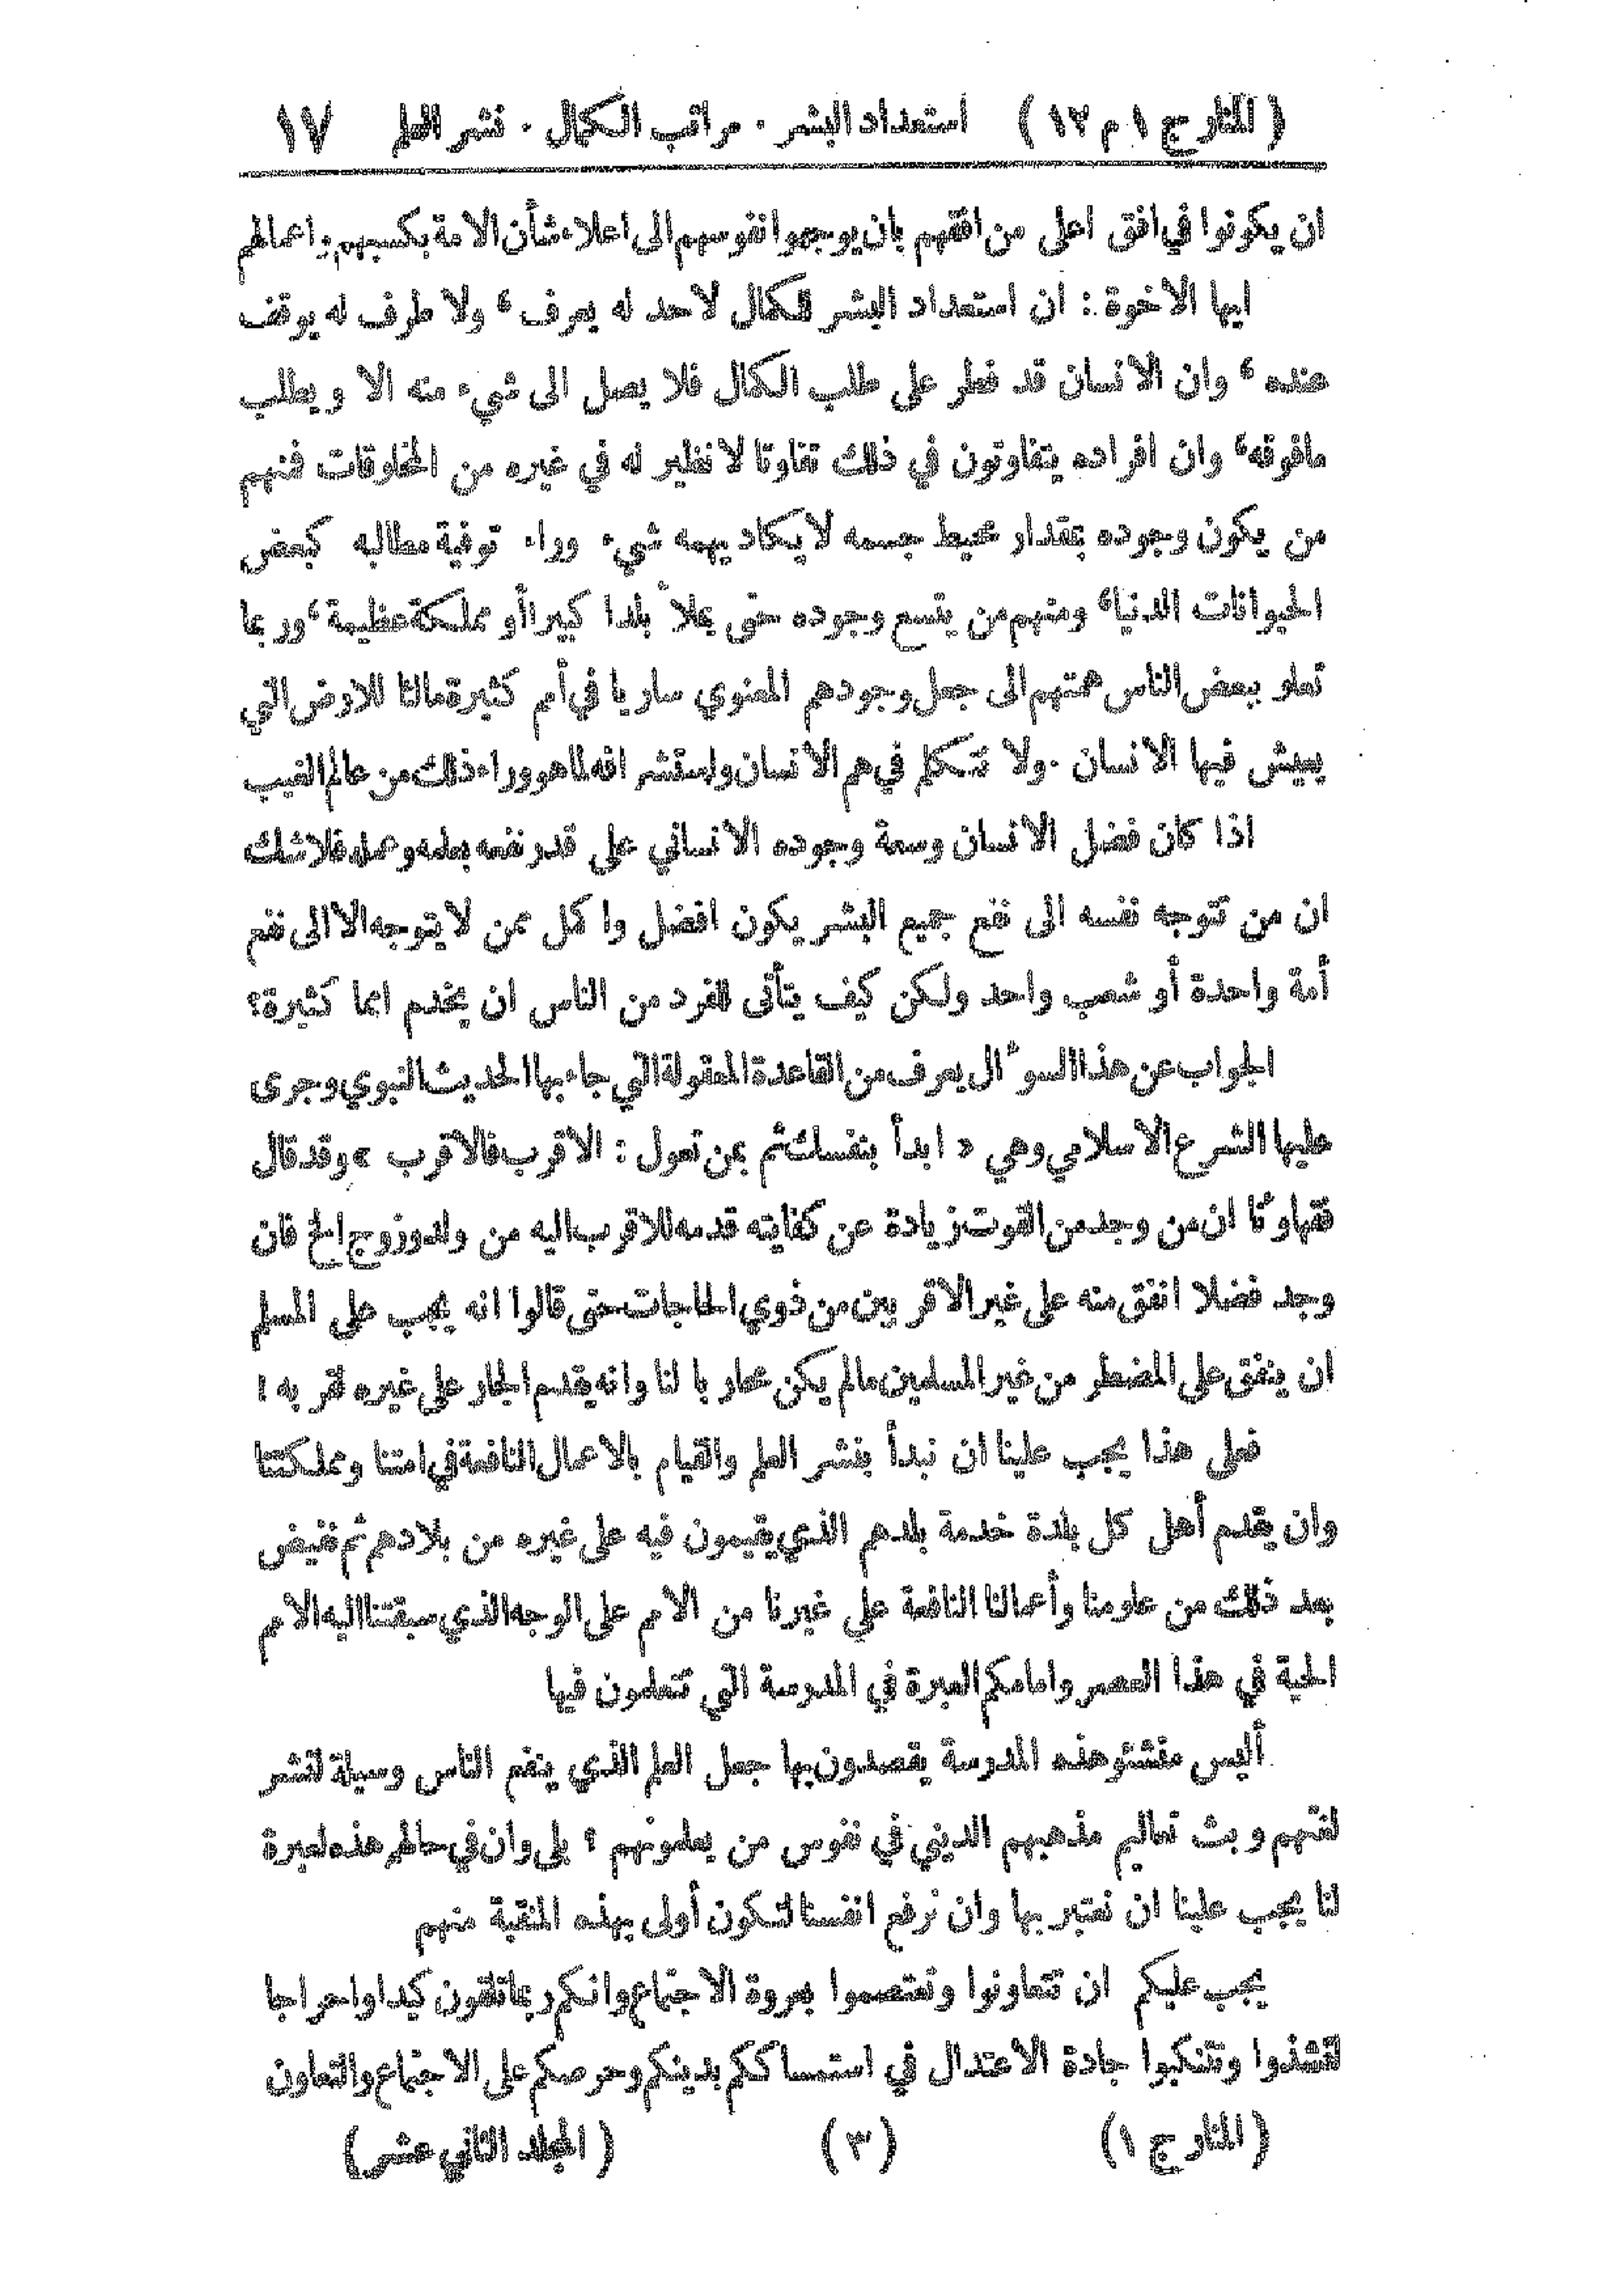 ( المنار ج ١ م ١٢ ) استعداد البشر . مراتب الكمال . نشر العلم ١٧
ان يكونوا في افق اعلى من افقهم بان يوجهوا نفوسهم الى اعلاء شأن الامة بكسبهم واعمالهم
ايها الاخوة : ان استعداد البشر للكمال لاحد له يعرف ، ولا طرف له يوقف
عنده ، وان الانسان قد فطر على طلب الكمال فلا يصل الى شيء منه الا ويطلب
مافوقه ، وان افراده يتفاوتون في ذلك تفاوتا لا نظير له في غيره من المخلوقات فمنهم
من يكون وجوده بمقدار محيط جسمه لا يكاد يهمه شيء وراء توفية مطالبه كبعض
الحيوانات الدنيا ، ومنهم من يتسع وجوده حتى يملأ بلدا كبيرا أو مملكة عظيمة ، وربما
تعلو ببعض الناس همتهم الى جعل وجودهم المعنوي ساريا في أمم كثيرة مالئا للارض التي
يعيش فيها الانسان . ولا نتكلم في هم الانسان واستشرافه لما هو وراء ذلك من عالم الغيب
اذا كان فضل الانسان وسعة وجوده الانساني على قدر نفعه بعلمه وعمله فلا شك
ان من تتوجه نفسه الى نفع جميع البشر يكون افضل واكمل ممن لا يتوجه الا الى نفع
أمة واحدة أو شعب واحد ولكن كيف يتأتى للفرد من الناس ان يخدم امما كثيرة ؟
الجواب عن هذا السوءال يعرف من القاعدة المعقولة التي جاء بها الحديث النبوي وجرى
عليها الشرع الاسلامي وهي « ابدأ بنفسك ثم بمن تعول : الاقرب فالاقرب » وقد قال
فقهاوءنا ان من وجد من القوت زيادة عن كفايته قدمه للاقرب اليه من ولد وزوج الخ فان
وجد فضلا انفق منه على غير الاقربين من ذوي الحاجات حتى قالوا انه يجب على المسلم
ان ينفق على المضطر من غير المسلمين مالم يكن محاربا لنا وانه يقدم الجار على غيره لقربه !
فعلى هذا يجب علينا ان نبدأ بنشر العلم والقيام بالاعمال النافعة في امتنا ومملكتنا
وان يقدم أهل كل بلدة خدمة بلدهم الذي يقيمون فيه على غيره من بلادهم ثم نفيض
بعد ذلك من علومنا وأعمالنا النافعة على غيرنا من الامم على الوجه الذي سبقتنا اليه الامم
الحية في هذا العصر وامامكم العبرة في المدرسة التي تتعلمون فيها
أليس منشئو هذه المدرسة يقصدون بها جعل العلم الذي ينفع الناس وسيلة لنشر
لغتهم وبث تعاليم مذهبهم الديني في نفوس من يعلمونهم ؟ بلى وان في حالهم هذه لعبرة
لنا يجب علينا ان نعتبر بها وان نرفع انفسنا لنكون أولى بهذه المنقبة منهم
يجب عليكم ان تتعاونوا وتعتصموا بعروة الاجتماع وانكم ربما تلقون كيدا واحراجا
لتشذوا وتتنكبوا جادة الاعتدال في استمساككم بدينكم وحرصكم على الاجتماع والتعاون
( المنار ج ١ ) ( ٣ ) ( المجلد الثاني عشر )